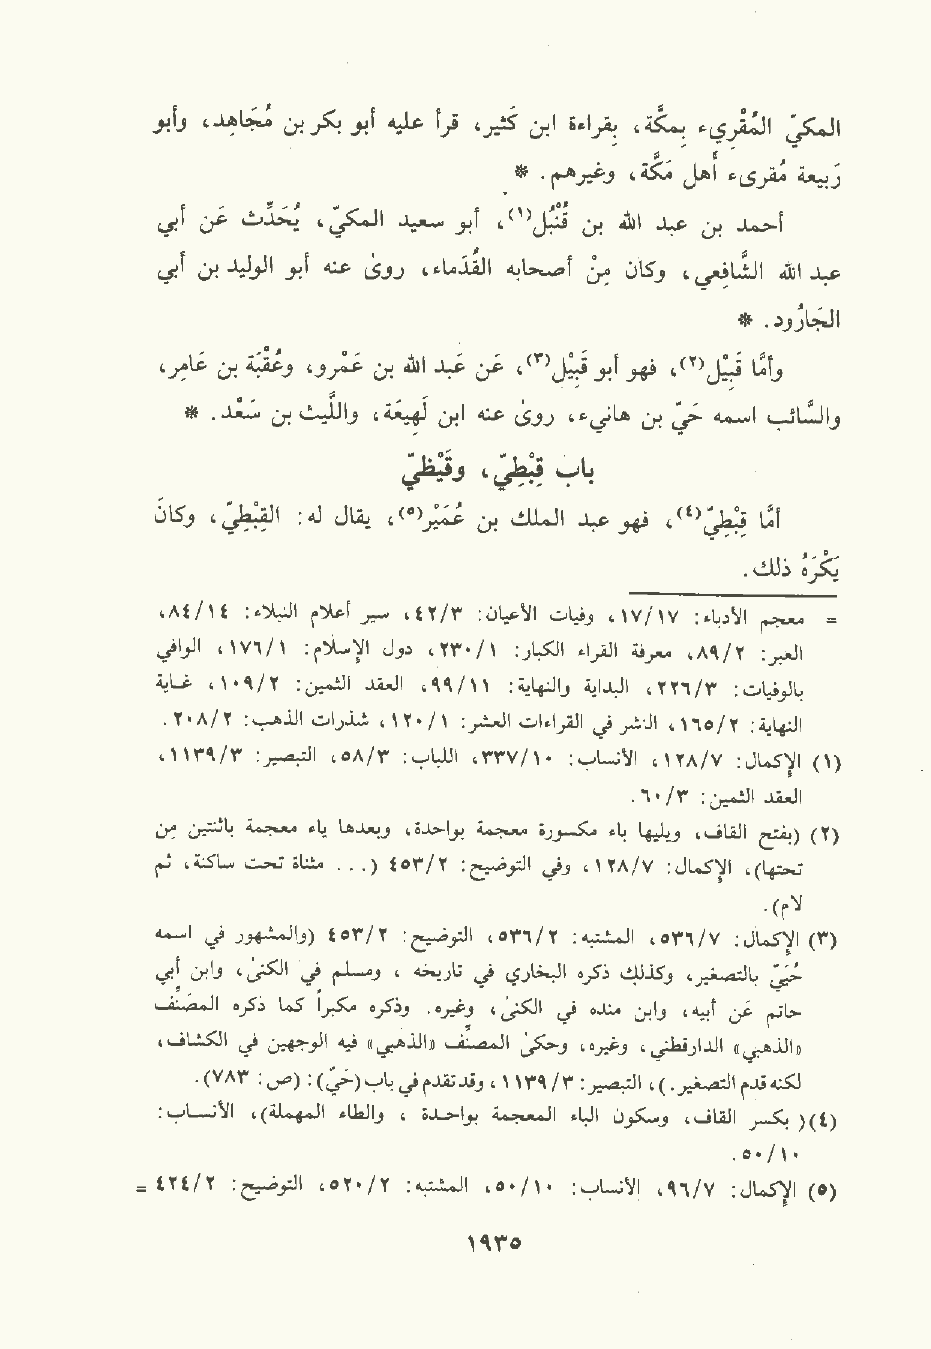 المكيّ المُقْرِيء بمكَّة، بِقراءة ابن كَثير، قرأ عليه أبو بكر بن مُجَاهِد، وأبو
رَبيعة مُقرىء أَهل مَكَّة، وغيرهم. *
أحمد بن عبد الله بن قُنْبُل(١)، أبو سعيد المكيّ، يُحَدِّث عَن أبي
عبد الله الشَّافِعي، وكان مِنْ أصحابه القُدَماء، روىٰ عنه أبو الوليد بن أبي
الجَارُود. *
وأمَّا قَبِيْل(٢)، فهو أبو قَبِيْل(٣)، عَن عَبد الله بن عَمْرو، وعُقْبَة بن عَامِر،
والسَّائب اسمه حَيّ بن هانيء، روىٰ عنه ابن لَهِيعَة، واللَّيث بن سَعْد. *
باب قِبْطِيّ، وقَيْظيّ
أمَّا قِبْطِيّ(٤)، فهو عبد الملك بن عُمَيْر(٥)، يقال له: القِبْطِيّ، وكانَ
يَكْرَهُ ذلك.
= معجم الأدباء: ١٧/١٧، وفيات الأعيان: ٤٢/٣، سير أعلام النبلاء: ٨٤/١٤،
العبر: ٨٩/٢، معرفة القراء الكبار: ٢٣٠/١، دول الإسلام: ١٧٦/١، الوافي
بالوفيات: ٢٢٦/٣، البداية والنهاية: ٩٩/١١، العقد الثمين: ١٠٩/٢، غاية
النهاية: ١٦٥/٢، النشر في القراءات العشر: ١٢٠/١، شذرات الذهب: ٢٠٨/٢.
(١) الإكمال: ١٢٨/٧، الأنساب: ٣٣٧/١٠، اللباب: ٥٨/٣، التبصير: ١١٣٩/٣،
العقد الثمين: ٦٠/٣.
(٢) (بفتح القاف، ويليها باء مكسورة معجمة بواحدة، وبعدها ياء معجمة باثنتين مِن
تحتها)، الإكمال: ١٢٨/٧، وفي التوضيح: ٤٥٣/٢ (... مثناة تحت ساكنة، ثم
لام).
(٣) الإكمال: ٥٣٦/٧، المشتبه: ٥٣٦/٢، التوضيح: ٤٥٣/٢ (والمشهور في اسمه
حُيَيّ بالتصغير، وكذلك ذكره البخاري في تاريخه، ومسلم في الكنىٰ، وابن أبي
حاتم عَن أبيه، وابن منده في الكنىٰ، وغيره. وذكره مكبراً كما ذكره المصَنِّف
«الذهبي» الدارقطني، وغيره، وحكىٰ المصنِّف «الذهبي» فيه الوجهين في الكشاف،
لكنه قدم التصغير.)، التبصير: ١١٣٩/٣، وقد تقدم في باب (حَيّ): (ص: ٧٨٣).
(٤)( بكسر القاف، وسكون الباء المعجمة بواحدة، والطاء المهملة)، الأنساب:
٥٠/١٠.
(٥) الإكمال: ٩٦/٧، الأنساب: ٥٠/١٠، المشتبه: ٥٢٠/٢، التوضيح: ٤٢٤/٢ =
١٩٣٥